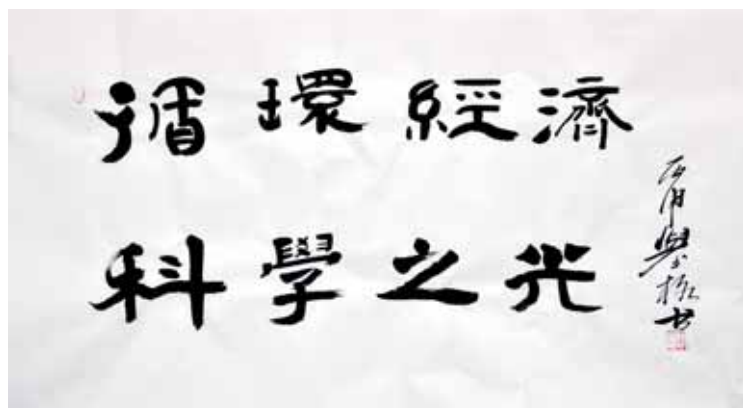 循環經濟
科學之光